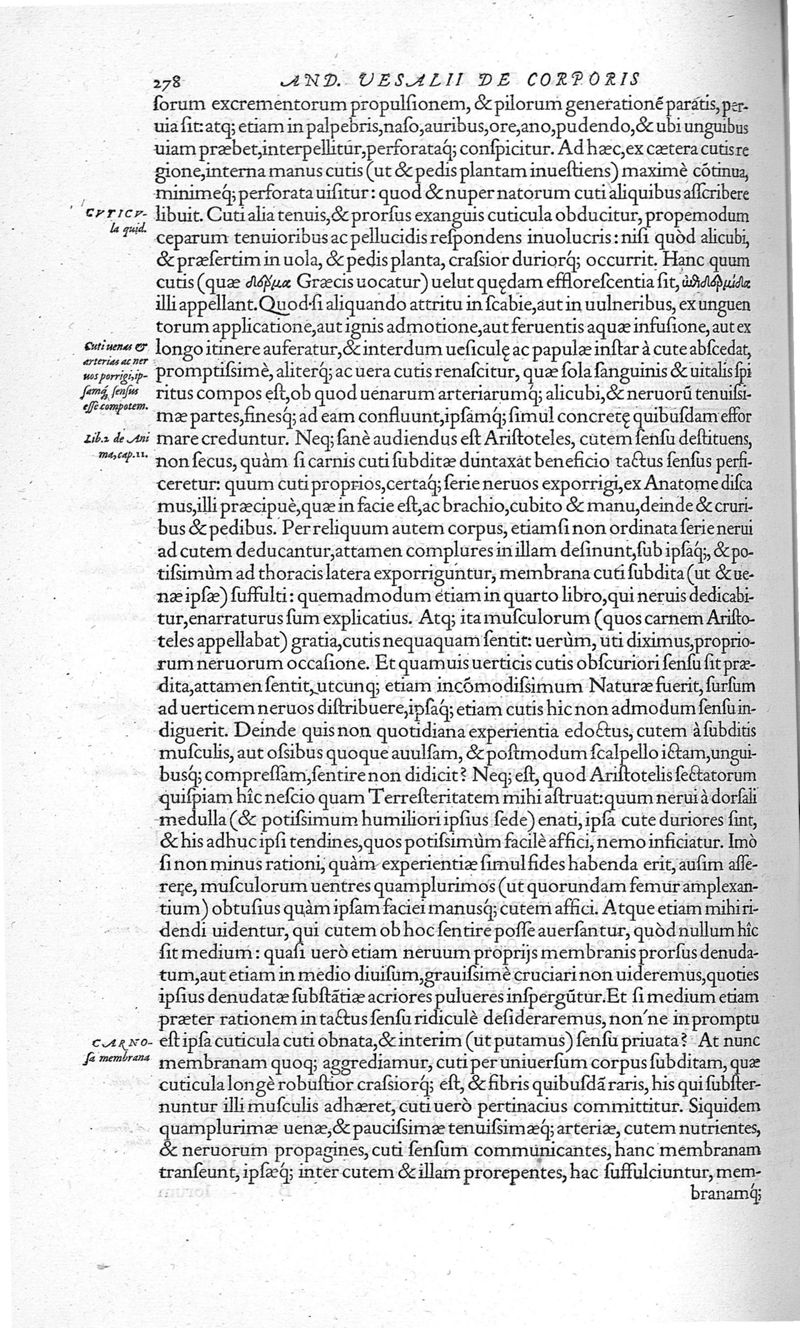 278 AND. VESALII DE CORPORIS
ſorum excrementorum propulſionem, & pilorum generationē paratis, per-
uia ſit: atq; etiam in palpebris, naſo, auribus, ore, ano, pudendo, & ubi unguibus
uiam præbet, interpellitur, perforataq; conſpicitur. Ad hæc, ex cætera cutis re
gione, interna manus cutis (ut & pedis plantam inueſtiens) maximè cōtinua,
minimeq́; perforata uiſitur: quod & nuper natorum cuti aliquibus aſſcribere
CVTICV-
la quid.
libuit. Cuti alia tenuis, & prorſus exanguis cuticula obducitur, propemodum
ceparum tenuioribus ac pellucidis reſpondens inuolucris: niſi quòd alicubi,
& præſertim in uola, & pedis planta, craſsior duriorq́; occurrit. Hanc quum
cutis (quæ δέρμα Græcis uocatur) uelut quędam effloreſcentia ſit, ἐπιδερμίδα
illi appellant. Quod ſi aliquando attritu in ſcabie, aut in uulneribus, ex unguen
torum applicatione, aut ignis admotione, aut feruentis aquæ infuſione, aut ex
Cuti uenas &
arterias ac ner
uos porrigi, ip-
ſamq́; ſenſus
eſſe compotem.
longo itinere auferatur, & interdum ueſiculę ac papulæ inſtar à cute abſcedat,
promptiſsimè, aliterq́; ac uera cutis renaſcitur, quæ ſola ſanguinis & uitalis ſpi
ritus compos eſt, ob quod uenarum arteriarumq́; alicubi, & neruorū tenuiſsi-
mæ partes, fineſq́; ad eam confluunt, ipſamq́; ſimul concretę quibuſdam effor
Lib.2 de Ani
ma, cap.11.
mare creduntur. Neq; ſanè audiendus eſt Ariſtoteles, cutem ſenſu deſtituens,
non ſecus, quàm ſi carnis cuti ſubditæ duntaxat beneficio tactus ſenſus perfi-
ceretur: quum cuti proprios, certaq́; ſerie neruos exporrigi, ex Anatome diſca
mus, illi præcipuè, quæ in facie eſt, ac brachio, cubito & manu, deinde & cruri-
bus & pedibus. Per reliquum autem corpus, etiamſi non ordinata ſerie nerui
ad cutem deducantur, attamen complures in illam deſinunt, ſub ipſaq́;, & po-
tiſsimùm ad thoracis latera exporriguntur, membrana cuti ſubdita (ut & ue-
næ ipſæ) ſuffulti: quemadmodum etiam in quarto libro, qui neruis dedicabi-
tur, enarraturus ſum explicatius. Atq; ita muſculorum (quos carnem Ariſto-
teles appellabat) gratia, cutis nequaquam ſentit: uerùm, uti diximus, proprio-
rum neruorum occaſione. Et quamuis uerticis cutis obſcuriori ſenſu ſit præ-
dita, attamen ſentit, utcunq; etiam incōmodiſsimum Naturæ fuerit, ſurſum
ad uerticem neruos diſtribuere, ipſaq́; etiam cutis hic non admodum ſenſu in-
diguerit. Deinde quis non quotidiana experientia edoctus, cutem à ſubditis
muſculis, aut oſsibus quoque auulſam, & poſtmodum ſcalpello ictam, ungui-
busq́; compreſſam, ſentire non didicit? Neq; eſt, quod Ariſtotelis ſectatorum
quiſpiam hîc neſcio quam Terreſteritatem mihi aſtruat: quum nerui à dorſali
medulla (& potiſsimum humiliori ipſius ſede) enati, ipſa cute duriores ſint,
& his adhuc ipſi tendines, quos potiſsimùm facilè affici, nemo inficiatur. Imò
ſi non minus rationi, quàm experientiæ ſimul fides habenda erit, auſim aſſe-
rere, muſculorum uentres quamplurimos (ut quorundam femur amplexan-
tium) obtuſius quàm ipſam faciei manusq́; cutem affici. Atque etiam mihi ri-
dendi uidentur, qui cutem ob hoc ſentire poſſe auerſantur, quòd nullum hîc
ſit medium: quaſi uerò etiam neruum proprijs membranis prorſus denuda-
tum, aut etiam in medio diuiſum, grauiſsimè cruciari non uideremus, quoties
ipſius denudatæ ſubſtātiæ acriores pulueres inſpergūtur. Et ſi medium etiam
præter rationem in tactus ſenſu ridiculè deſideraremus, non'ne in promptu
CARNO-
ſa membrana
eſt ipſa cuticula cuti obnata, & interim (ut putamus) ſenſu priuata? At nunc
membranam quoq; aggrediamur, cuti per uniuerſum corpus ſubditam, quæ
cuticula longè robuſtior craſsiorq́; eſt, & fibris quibuſdā raris, his qui ſubſter-
nuntur illi muſculis adhæret, cuti uerò pertinacius committitur. Siquidem
quamplurimæ uenæ, & pauciſsimæ tenuiſsimæq́; arteriæ, cutem nutrientes,
& neruorum propagines, cuti ſenſum communicantes, hanc membranam
tranſeunt, ipſæq́; inter cutem & illam prorepentes, hac ſuffulciuntur, mem-
branamq́;